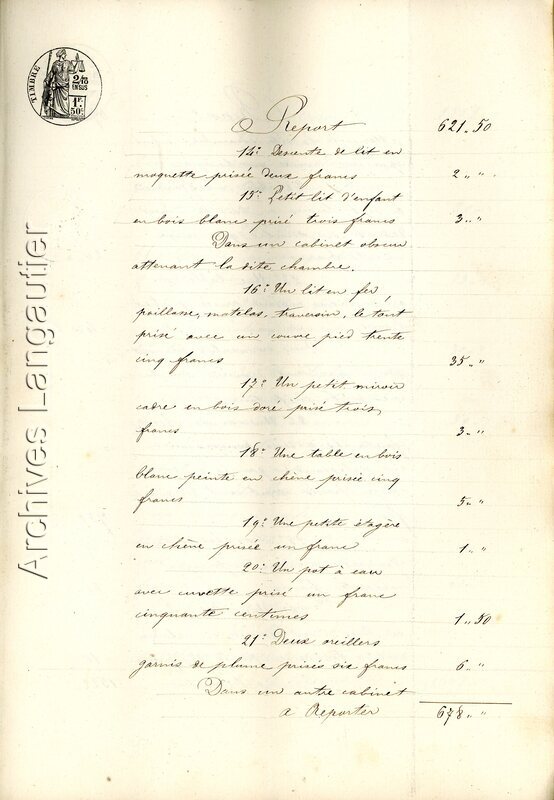 TIMBRE
2/10
EN SUS
1F.
50C.
Archives Langautier
Report 621.. 50
14° Descente de lit en
moquette prisée deux francs 2 .. "
15° Petit lit d'enfant
en bois blanc prisé trois francs 3 .. "
Dans un cabinet obscur
attenant la dite chambre.
16° Un lit en fer,
paillasse, matelas, traversin, le tout
prisé avec un couvre pied trente
cinq francs 35 .. "
17° Un petit miroir
cadre en bois doré prisé trois
francs 3 .. "
18° Une table en bois
blanc peinte en chêne prisée cinq
francs 5 .. "
19° Une petite étagère
en chêne prisée un franc 1 .. "
20° Un pot à eau
avec cuvette prisé un franc
cinquante centimes 1 .. 50
21° Deux oreillers
garnis de plume prisés six francs 6 .. "
Dans un autre cabinet
a Reporter 678 .. "